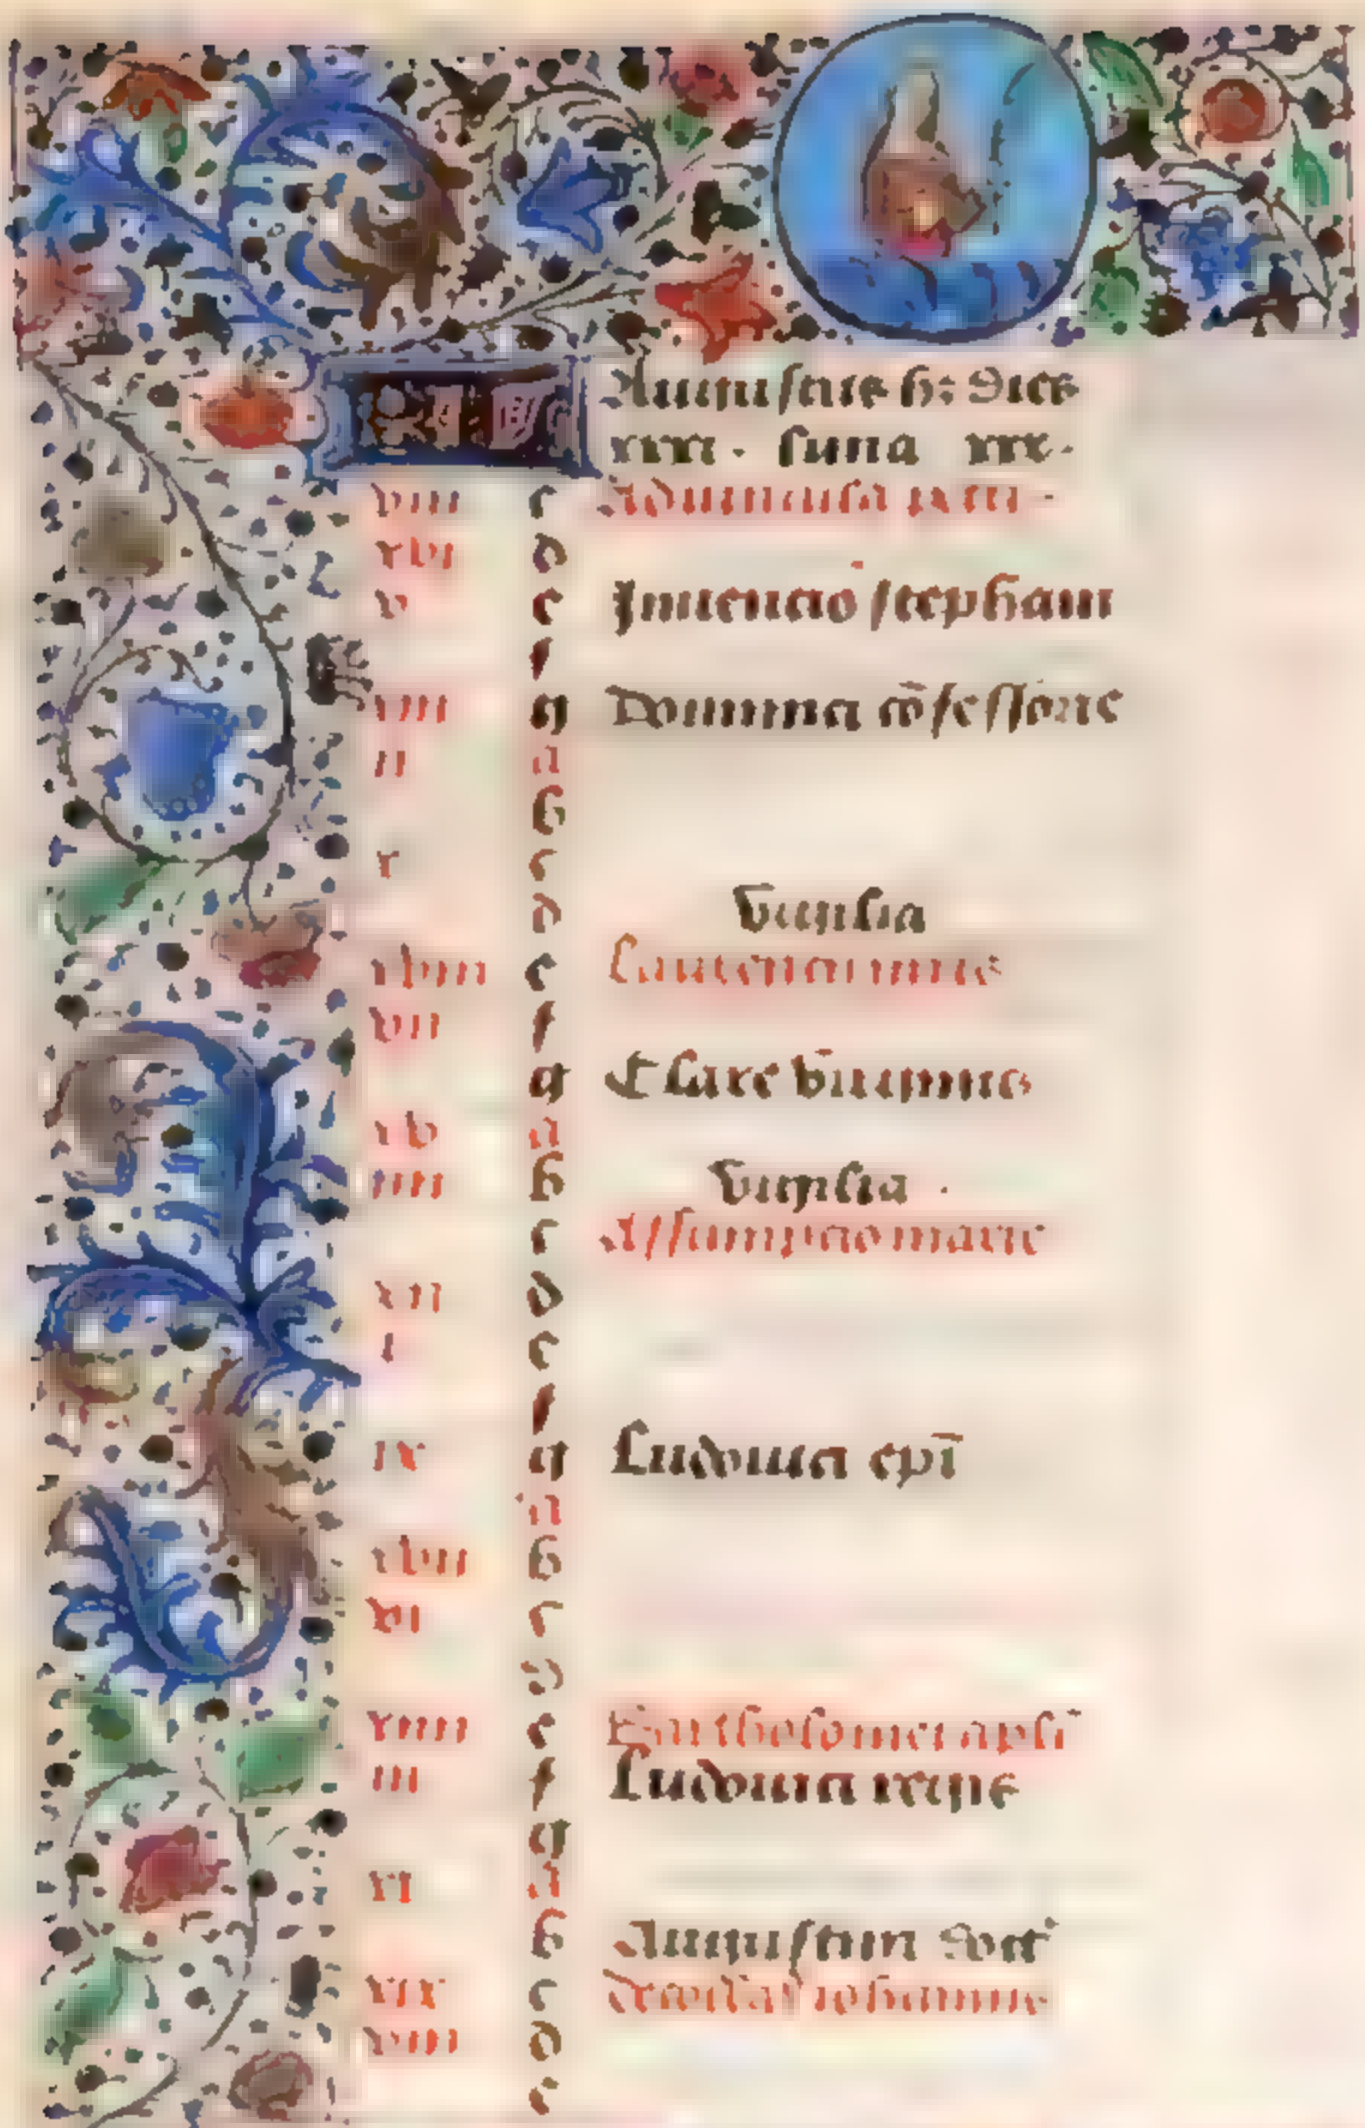 KL Augustus h: dies
xxxi . luna xxx .
viii c Advincula petri .
xvi d
v e Inuencio stephani
f
xiii g Dominici cōfessoris
ii a
b
x c
d vigilia
xviii e Laurencii
vii f Clare
g virginis
xv a
iiii b vigilia .
c Assumpcio marie
xii d
i e
f
ix g Ludouici epī
a
xvii b
vi c
d
xiiii e Bartholomei apli
iii f Ludouici regis
g
xi a
b Augustini doct
xix c Decollatˀ iohannis
viii d
e